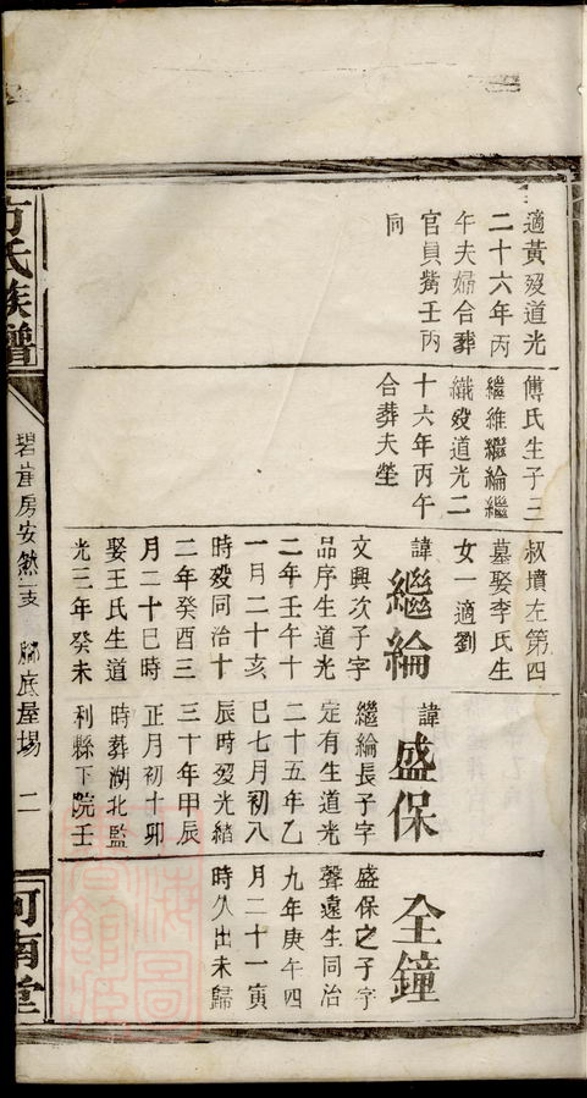 適黃歿道光
二十六年丙
午夫婦合葬
官貟觜壬丙
向
傅氏生子三
繼維繼綸繼
織歿道光二
十六年丙午
合葬夫塋
叔墳左第四
墓娶李氏生
女一適劉
諱繼綸
文興次子字
品序生道光
二年壬午十
一月二十亥
時歿同治十
二年癸酉三
月二十巳時
娶王氏生道
光三年癸未
諱盛保
繼綸長子字
定有生道光
二十五年乙
巳七月初八
辰時歿光緒
三十年甲辰
正月初十卯
時葬湖北監
利縣下院壬
全鐘
盛保之子字
聲遠生同治
九年庚午四
月二十一寅
時久出未歸
方氏族譜
碧萓房安然支
底屋場
二
河南堂